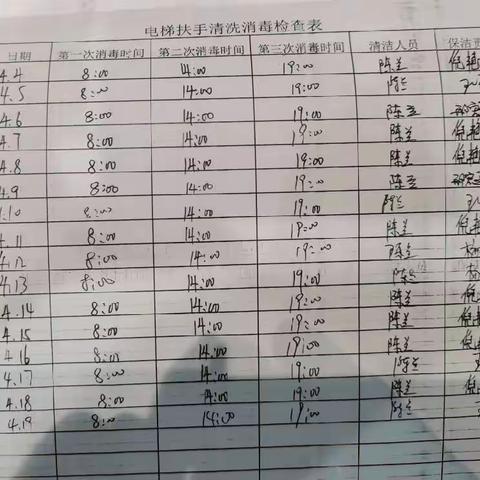 电梯扶手清洗消毒检查表
日期 第一次消毒时间 第二次消毒时间 第三次消毒时间 清洁人员 保洁
4.4 8:00 14:00 19:00 陈兰
4.5 8:00 14:00 19:00 陈兰
4.6 8:00 14:00 19:00 陈兰
4.7 8:00 14:00 19:00 陈兰
4.8 8:00 14:00 19:00 陈兰
4.9 8:00 14:00 19:00 陈兰
4.10 8:00 14:00 19:00 陈兰
4.11 8:00 14:00 19:00 陈兰
4.12 8:00 14:00 19:00 陈兰
4.13 8:00 14:00 19:00 陈兰
4.14 8:00 14:00 19:00 陈兰
4.15 8:00 14:00 19:00 陈兰
4.16 8:00 14:00 19:00 陈兰
4.17 8:00 14:00 19:00 陈兰
4.18 8:00 14:00 19:00 陈兰
4.19 8:00 14:00 19:00 陈兰